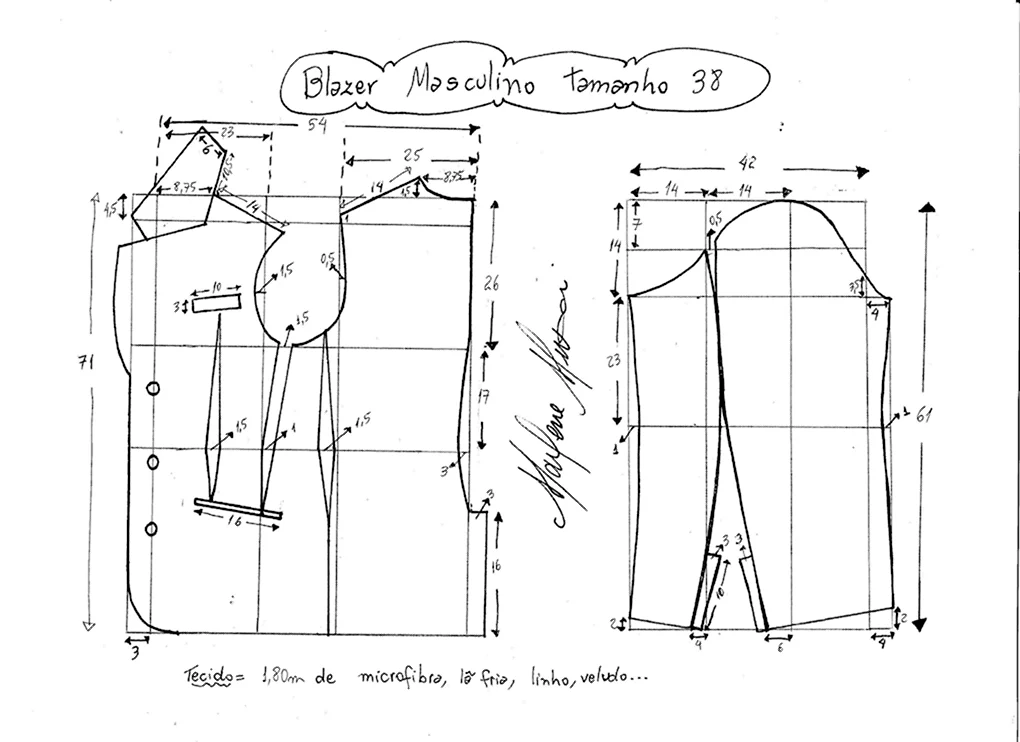 Blazer Masculino tamanho 38
54
23
6
14,5
25
8,75
14
14
1,5
8,75
4,5
1
26
0,5
1,5
10
3
1,5
71
17
1,5
1
1,5
3
3
16
16
3
42
14
14
7
0,5
14
3,5
4
23
61
1
1
3 3
10
2
2
4
6
4
Marlene Mukai
Tecido= 1,80m de microfibra, lã fria, linho, veludo...